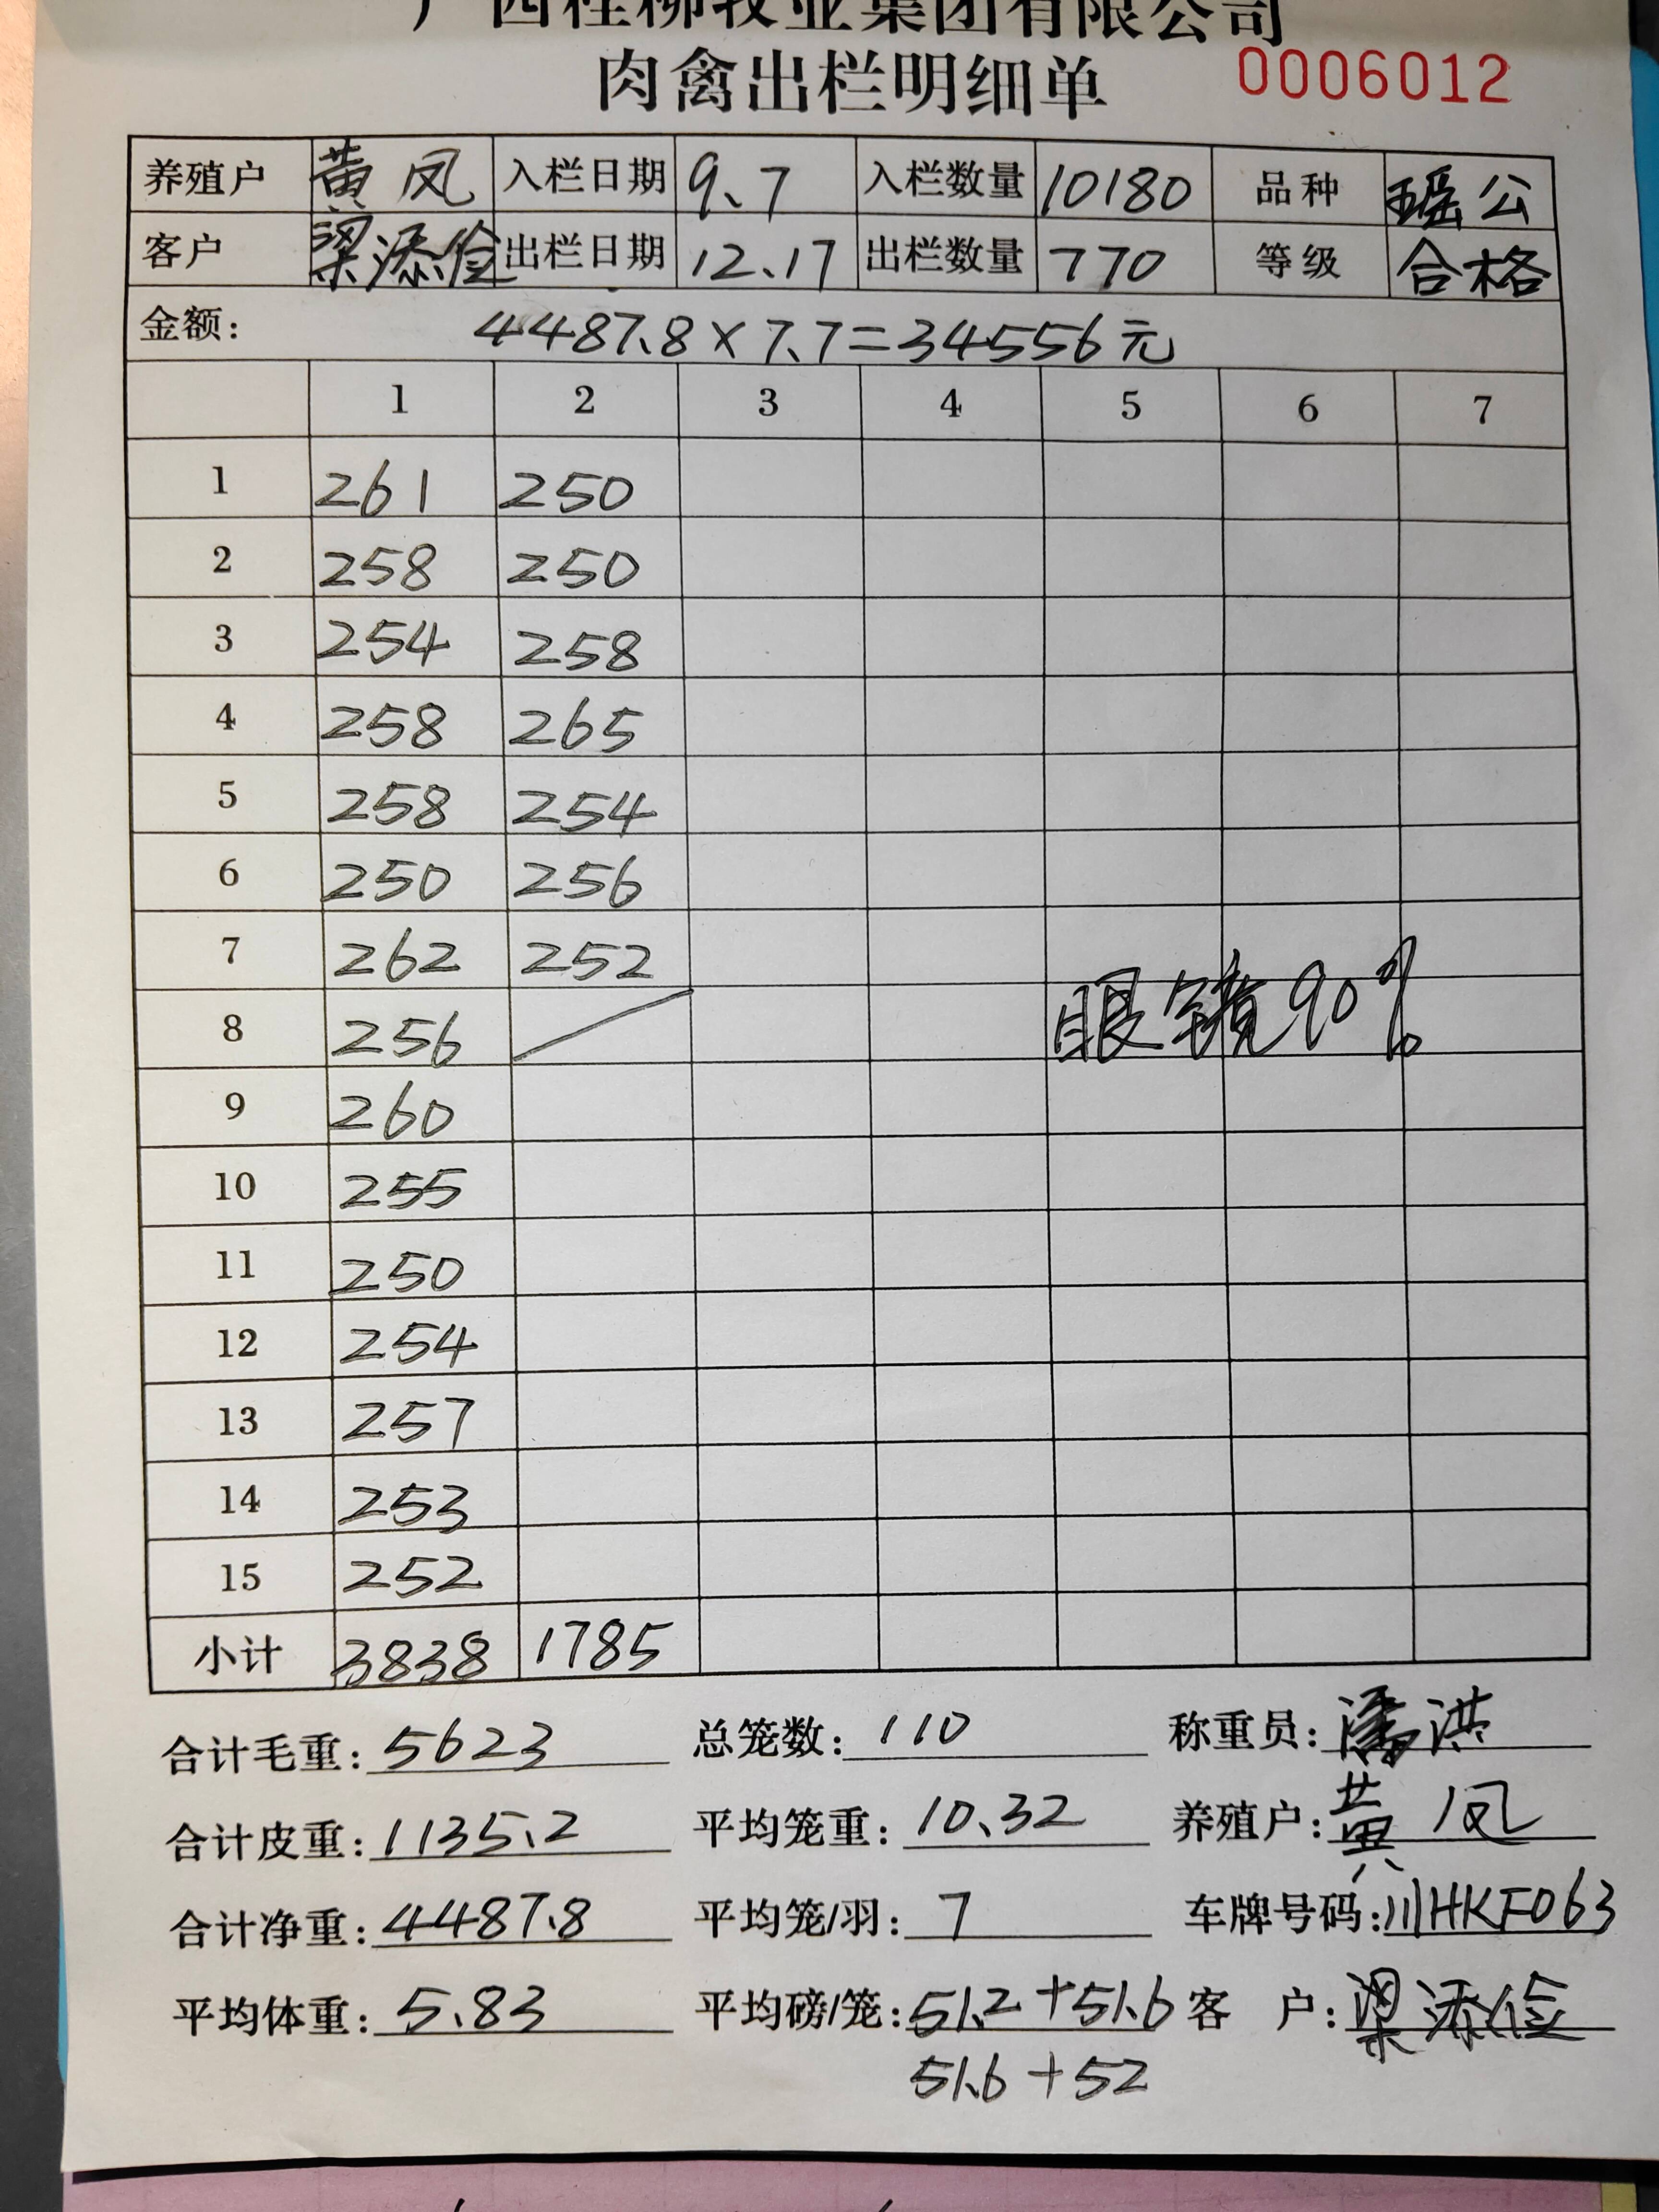 广西桂柳牧业集团有限公司
肉禽出栏明细单 0006012
养殖户 黄凤 入栏日期 9.7 入栏数量 10180 品种 瑶公
客户 梁添俭 出栏日期 12.17 出栏数量 770 等级 合格
金额: 4487.8×7.7=34556元
1 2 3 4 5 6 7
1 261 250
2 258 250
3 254 258
4 258 265
5 258 254
6 250 256
7 262 252
8 256 眼镜90%
9 260
10 255
11 250
12 254
13 257
14 253
15 252
小计 3838 1785
合计毛重: 5623 总笼数: 110 称重员: 潘洪
合计皮重: 1135.2 平均笼重: 10.32 养殖户: 黄凤
合计净重: 4487.8 平均笼/羽: 7 车牌号码: 川HKF063
平均体重: 5.83 平均磅/笼: 51.2+51.6 客户: 梁添俭
51.6+52